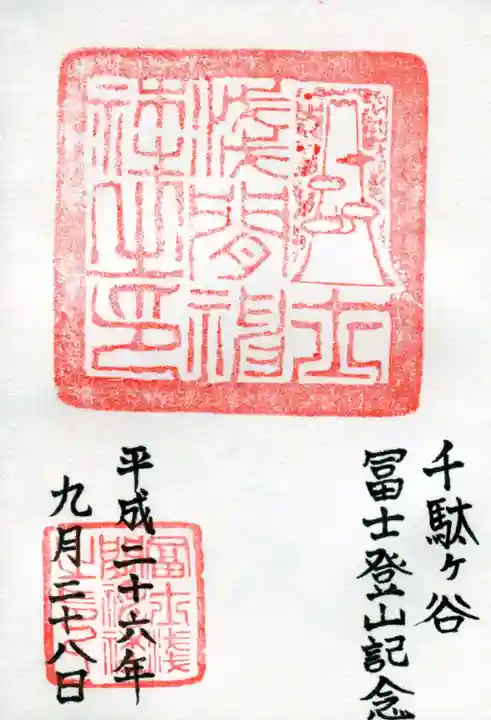 士
淺間神
社之印
千駄ヶ谷
冨士登山記念
平成二十六年
九月二十八日
冨士淺
間神社